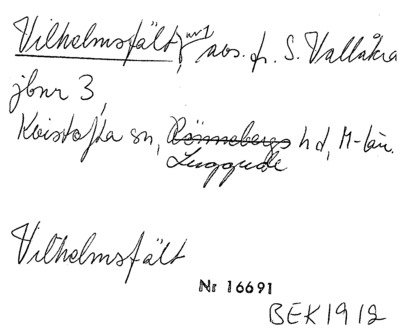 Vilhelmsfält, nr 1, avs. fr. S. Vallåkra
jbnr 3,
Kvistofta sn, Rönnebergs hd, M-län.
Luggude
Vilhelmsfält
Nr 16691
BEK 1912